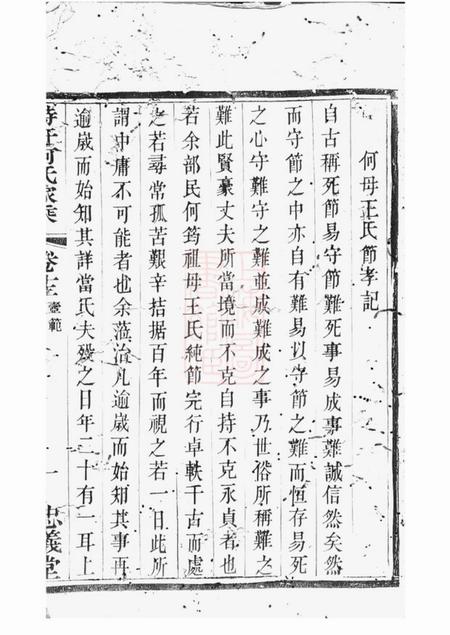 何母王氏節孝記
自古稱死節易守節難死事易成事難誠信然矣然
而守節之中亦自有難易以守節之難而恒存易死
之心守難守之難並成難成之事乃世俗所稱難之
難此賢豪丈夫所當境而不克自持不克永貞者也
若余部民何筠祖母王氏純節完行卓軼千古而處
之若尋常孤苦艱辛拮据百年而視之若一日此所
謂中庸不可能者也余蒞治凡逾歲而始知其事再
逾歲而始知其詳當氏夫歿之日年二十有一耳上
何氏家乘
卷之
壼範
一
忠義堂